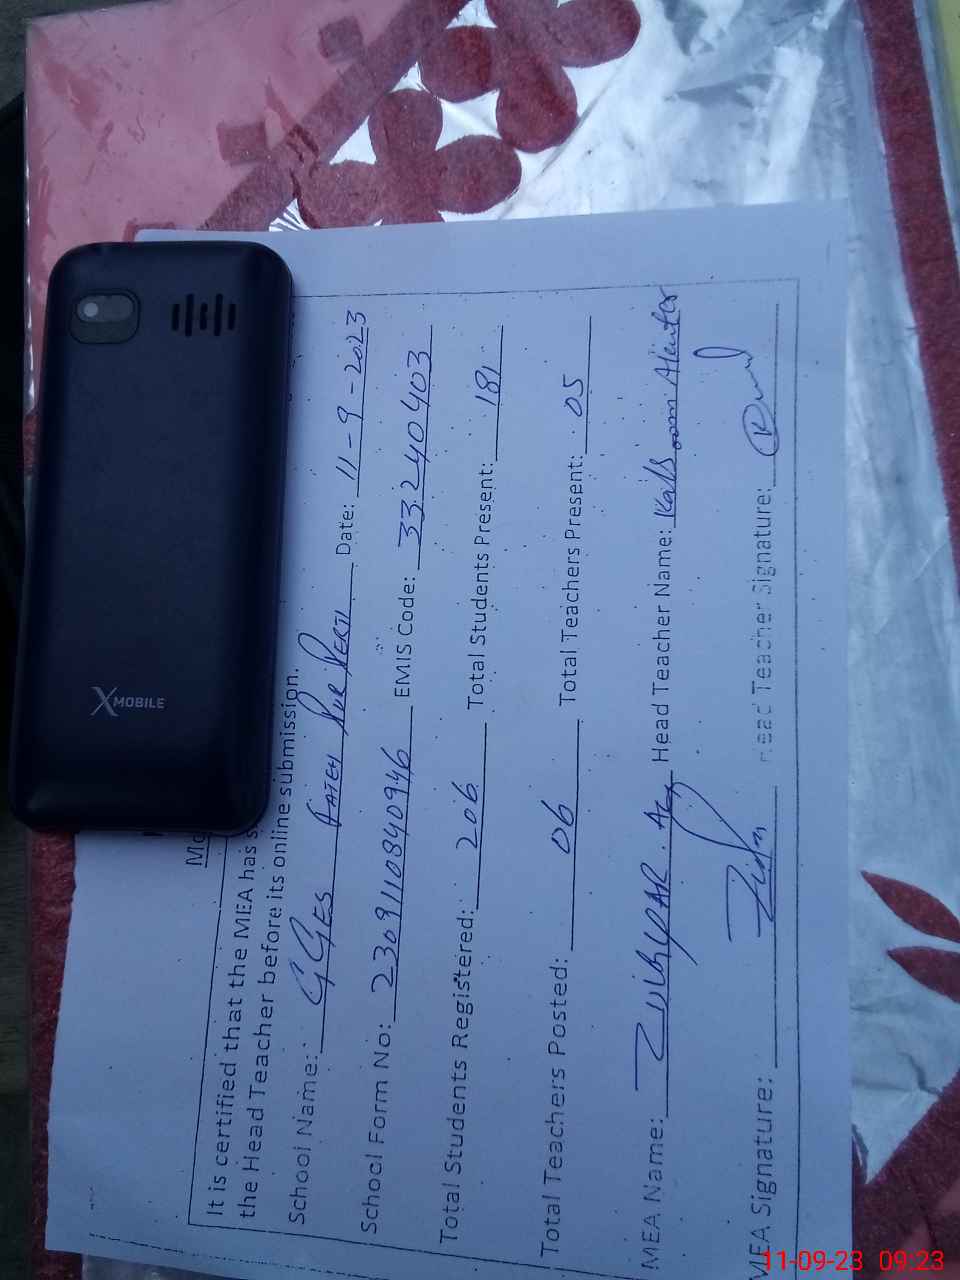 X MOBILE
Mo
It is certified that the MEA has s
the Head Teacher before its online submission.
School Name: GGES FATEH PUR Date: 11-9-2023
School Form No: 2309110840946 EMIS Code: 33240403
Total Students Registered: 206 Total Students Present: 181
Total Teachers Posted: 06 Total Teachers Present: 05
MEA Name: Head Teacher Name:
MEA Signature: Head Teacher Signature:
11-09-23 09:23